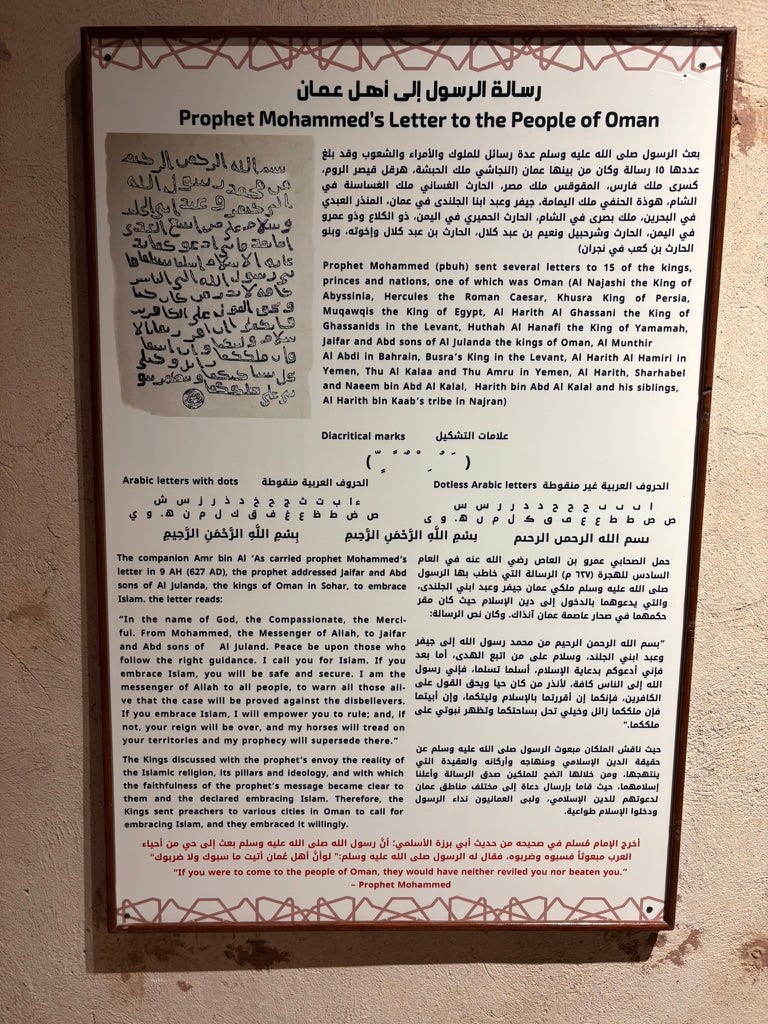 رسالة الرسول إلى أهل عمان
Prophet Mohammed's Letter to the People of Oman
بعث الرسول صلى الله عليه وسلم عدة رسائل للملوك والأمراء والشعوب وقد بلغ
عددها ١٥ رسالة وكان من بينها عمان (النجاشي ملك الحبشة، هرقل قيصر الروم،
كسرى ملك فارس، المقوقس ملك مصر، الحارث الغساني ملك الغساسنة في
الشام، هوذة الحنفي ملك اليمامة، جيفر وعبد ابنا الجلندى في عمان، المنذر العبدي
في البحرين، ملك بصرى في الشام، الحارث الحميري في اليمن، ذو الكلاع وذو عمرو
في اليمن، الحارث وشرحبيل ونعيم بن عبد كلال، الحارث بن عبد كلال وإخوته، وبنو
الحارث بن كعب في نجران)
Prophet Mohammed (pbuh) sent several letters to 15 of the kings,
princes and nations, one of which was Oman (Al Najashi the King of
Abyssinia, Hercules the Roman Caesar, Khusra King of Persia,
Muqawqis the King of Egypt, Al Harith Al Ghassani the King of
Ghassanids in the Levant, Huthah Al Hanafi the King of Yamamah,
Jaifar and Abd sons of Al Julanda the kings of Oman, Al Munthir
Al Abdi in Bahrain, Busra's King in the Levant, Al Harith Al Hamiri in
Yemen, Thu Al Kalaa and Thu Amru in Yemen, Al Harith, Sharhabel
and Naeem bin Abd Al Kalal, Harith bin Abd Al Kalal and his siblings,
Al Harith bin Kaab's tribe in Najran)
Diacritical marks علامات التشكيل
Arabic letters with dots الحروف العربية منقوطة
ء ا ب ت ث ج ح خ د ذ ر ز س ش
ص ض ط ظ ع غ ف ق ك ل م ن هـ و ي
بِسْمِ اللَّهِ الرَّحْمَٰنِ الرَّحِيمِ
Dotless Arabic letters الحروف العربية غير منقوطة
بسم الله الرحمن الرحيم
The companion Amr bin Al 'As carried prophet Mohammed's
letter in 9 AH (627 AD), the prophet addressed Jaifar and Abd
sons of Al Julanda, the kings of Oman in Sohar, to embrace
Islam. the letter reads:
"In the name of God, the Compassionate, the Merci-
ful. From Mohammed, the Messenger of Allah, to Jaifar
and Abd sons of Al Juland. Peace be upon those who
follow the right guidance. I call you for Islam. If you
embrace Islam, you will be safe and secure. I am the
messenger of Allah to all people, to warn all those ali-
ve that the case will be proved against the disbelievers.
If you embrace Islam, I will empower you to rule; and, if
not, your reign will be over, and my horses will tread on
your territories and my prophecy will supersede there."
The Kings discussed with the prophet's envoy the reality of
the Islamic religion, its pillars and ideology, and with which
the faithfulness of the prophet's message became clear to
them and the declared embracing Islam. Therefore, the
Kings sent preachers to various cities in Oman to call for
embracing Islam, and they embraced it willingly.
حمل الصحابي عمرو بن العاص رضي الله عنه في العام
السادس للهجرة (٦٢٧ م) الرسالة التي خاطب بها الرسول
صلى الله عليه وسلم ملكي عمان جيفر وعبد ابني الجلندى،
والتي يدعوهما بالدخول إلى دين الإسلام حيث كان مقر
حكمهما في صحار عاصمة عمان آنذاك. وكان نص الرسالة:
"بسم الله الرحمن الرحيم من محمد رسول الله إلى جيفر
وعبد ابني الجلند، وسلام على من اتبع الهدى، أما بعد
فإني أدعوكم بدعاية الإسلام، أسلما تسلما، فإني رسول
الله إلى الناس كافة، لأنذر من كان حيا ويحق القول على
الكافرين، فإنكما إن أقررتما بالإسلام وليتكما، وإن أبيتما
فإن ملككما زائل وخيلي تحل بساحتكما وتظهر نبوتي على
ملككما."
حيث ناقش الملكان مبعوث الرسول صلى الله عليه وسلم عن
حقيقة الدين الإسلامي ومنهاجه وأركانه والعقيدة التي
ينتهجها، ومن خلالها اتضح للملكين صدق الرسالة وأعلنا
إسلامهما، حيث قاما بإرسال دعاة إلى مختلف مناطق عمان
لدعوتهم للدين الإسلامي، ولبى العمانيون نداء الرسول
ودخلوا الإسلام طواعية.
أخرج الإمام مُسلم في صحيحه من حديث أبي برزة الأسلمي؛ أنَّ رسول الله صلى الله عليه وسلم بعث إلى حي من أحياء
العرب مبعوثاً فسبوه وضربوه، فقال له الرسول صلى الله عليه وسلم:" لوأنَّ أهل عُمان أتيت ما سبوك ولا ضربوك"
"If you were to come to the people of Oman, they would have neither reviled you nor beaten you."
– Prophet Mohammed